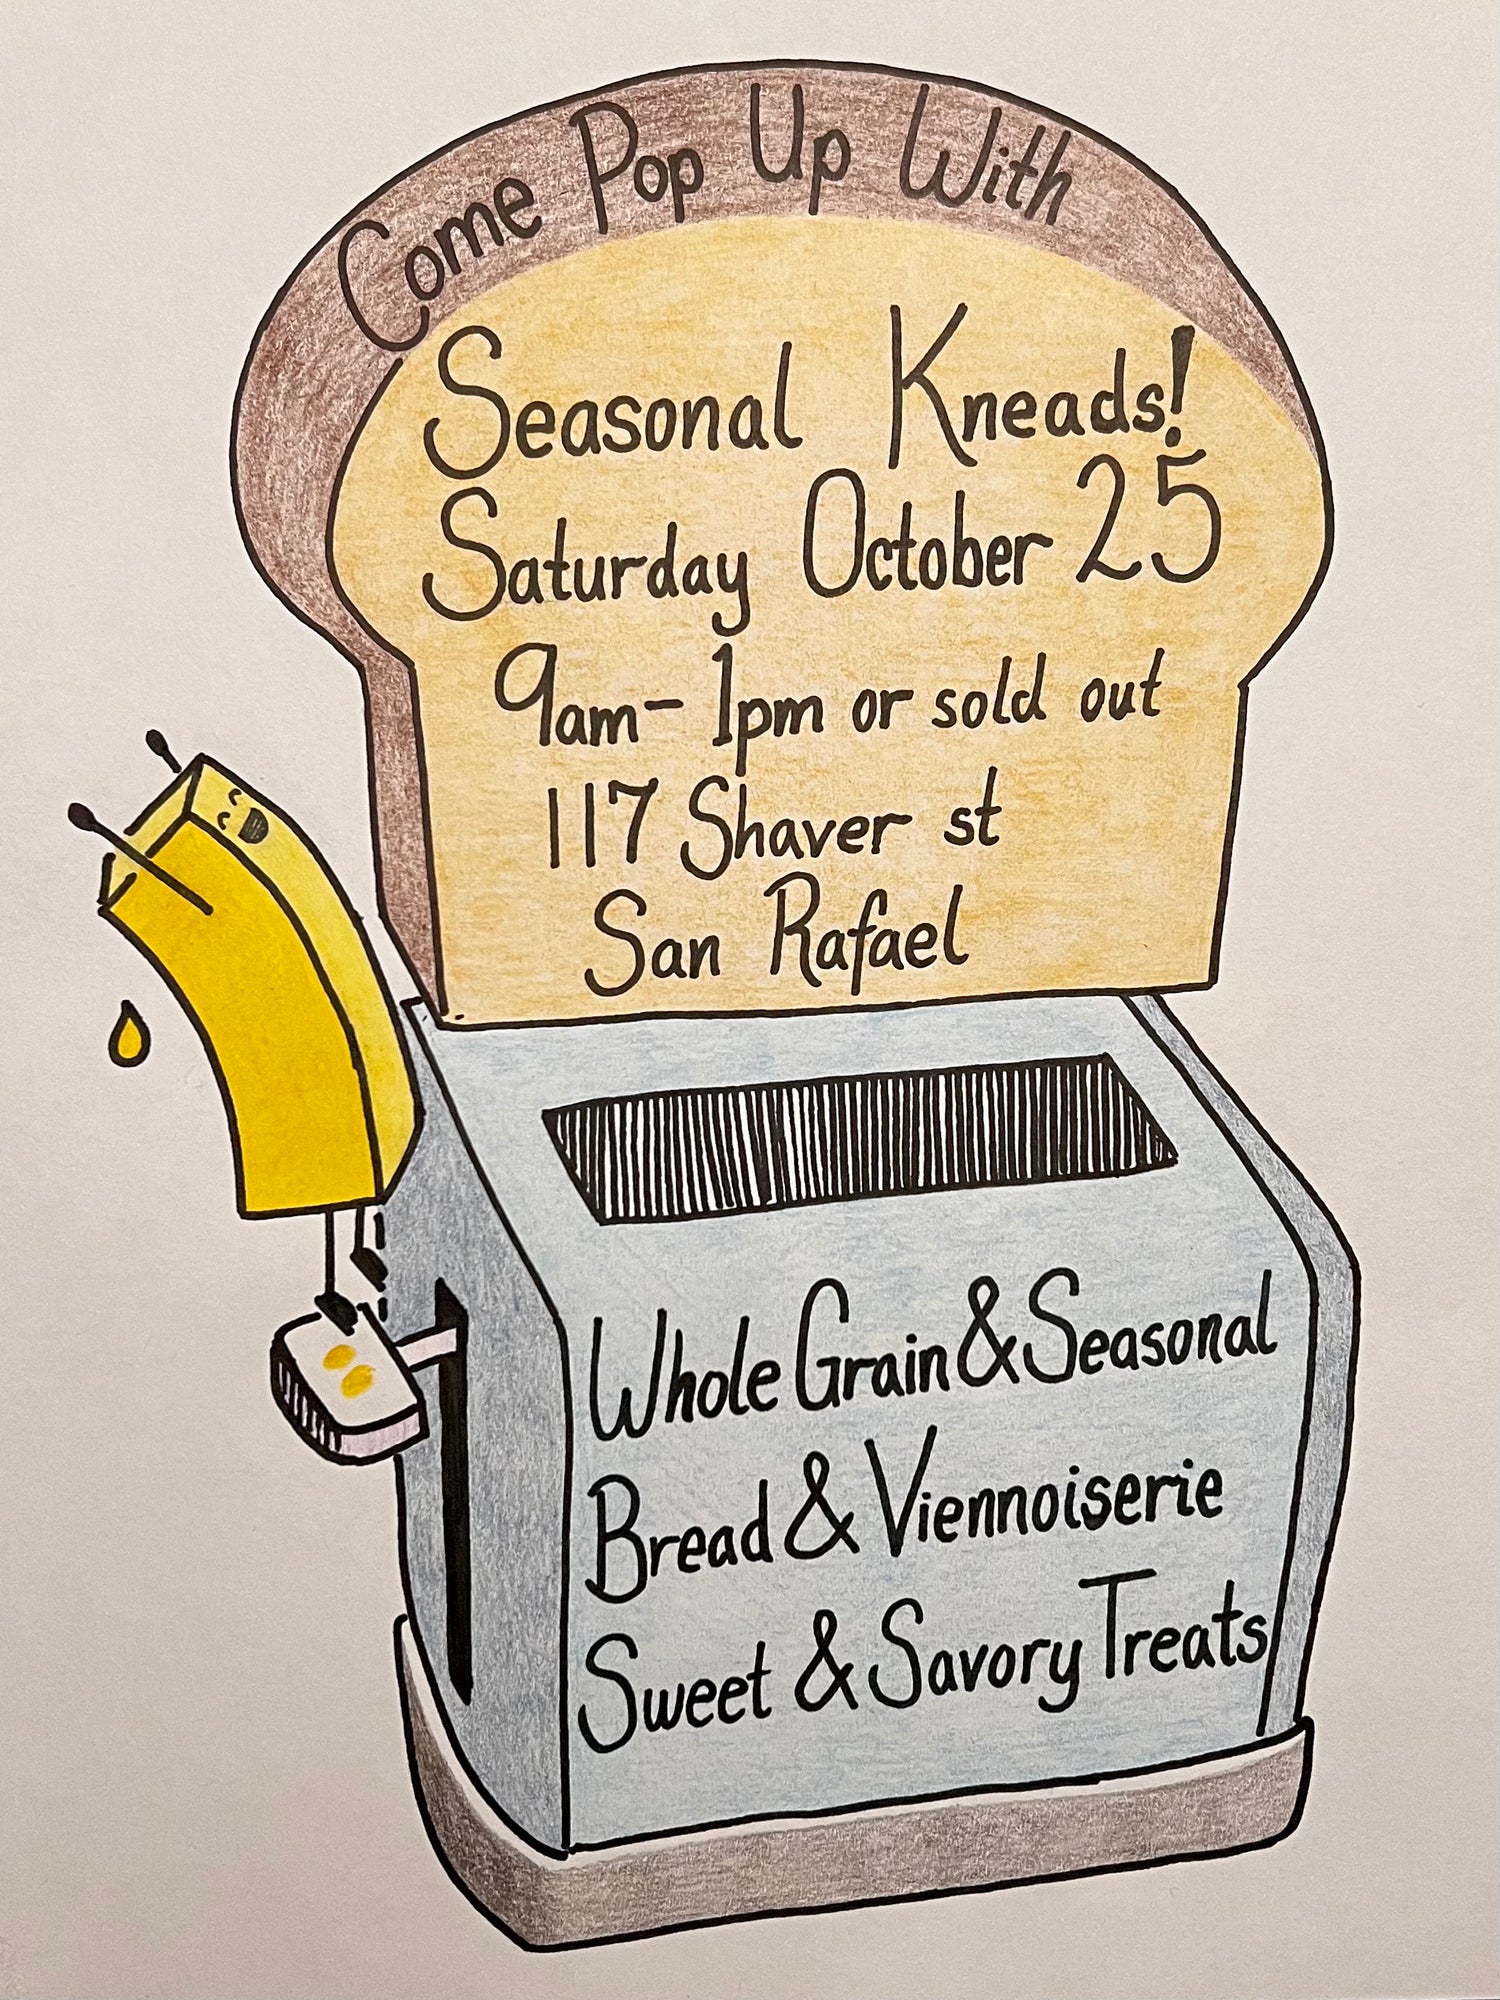 Come Pop Up With
Seasonal Kneads!
Saturday October 25
9am-1pm or sold out
117 Shaver st
San Rafael
Whole Grain & Seasonal
Bread & Viennoiserie
Sweet & Savory Treats